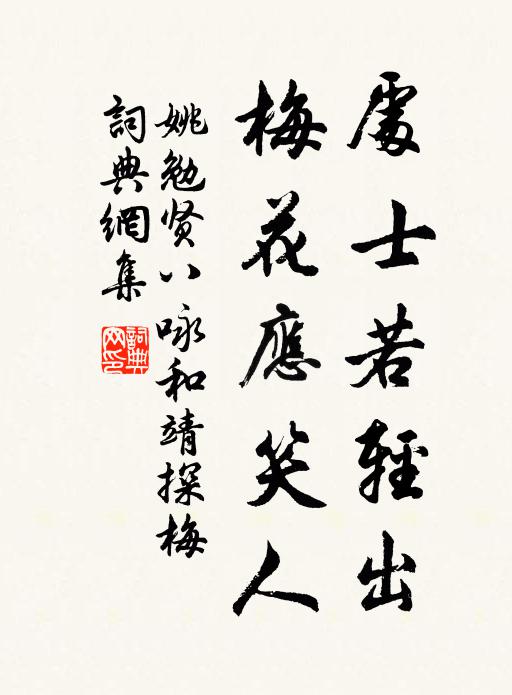 處士若輕出
梅花應笑人
姚勉贤八咏和靖探梅
詞典網集
詞典網印